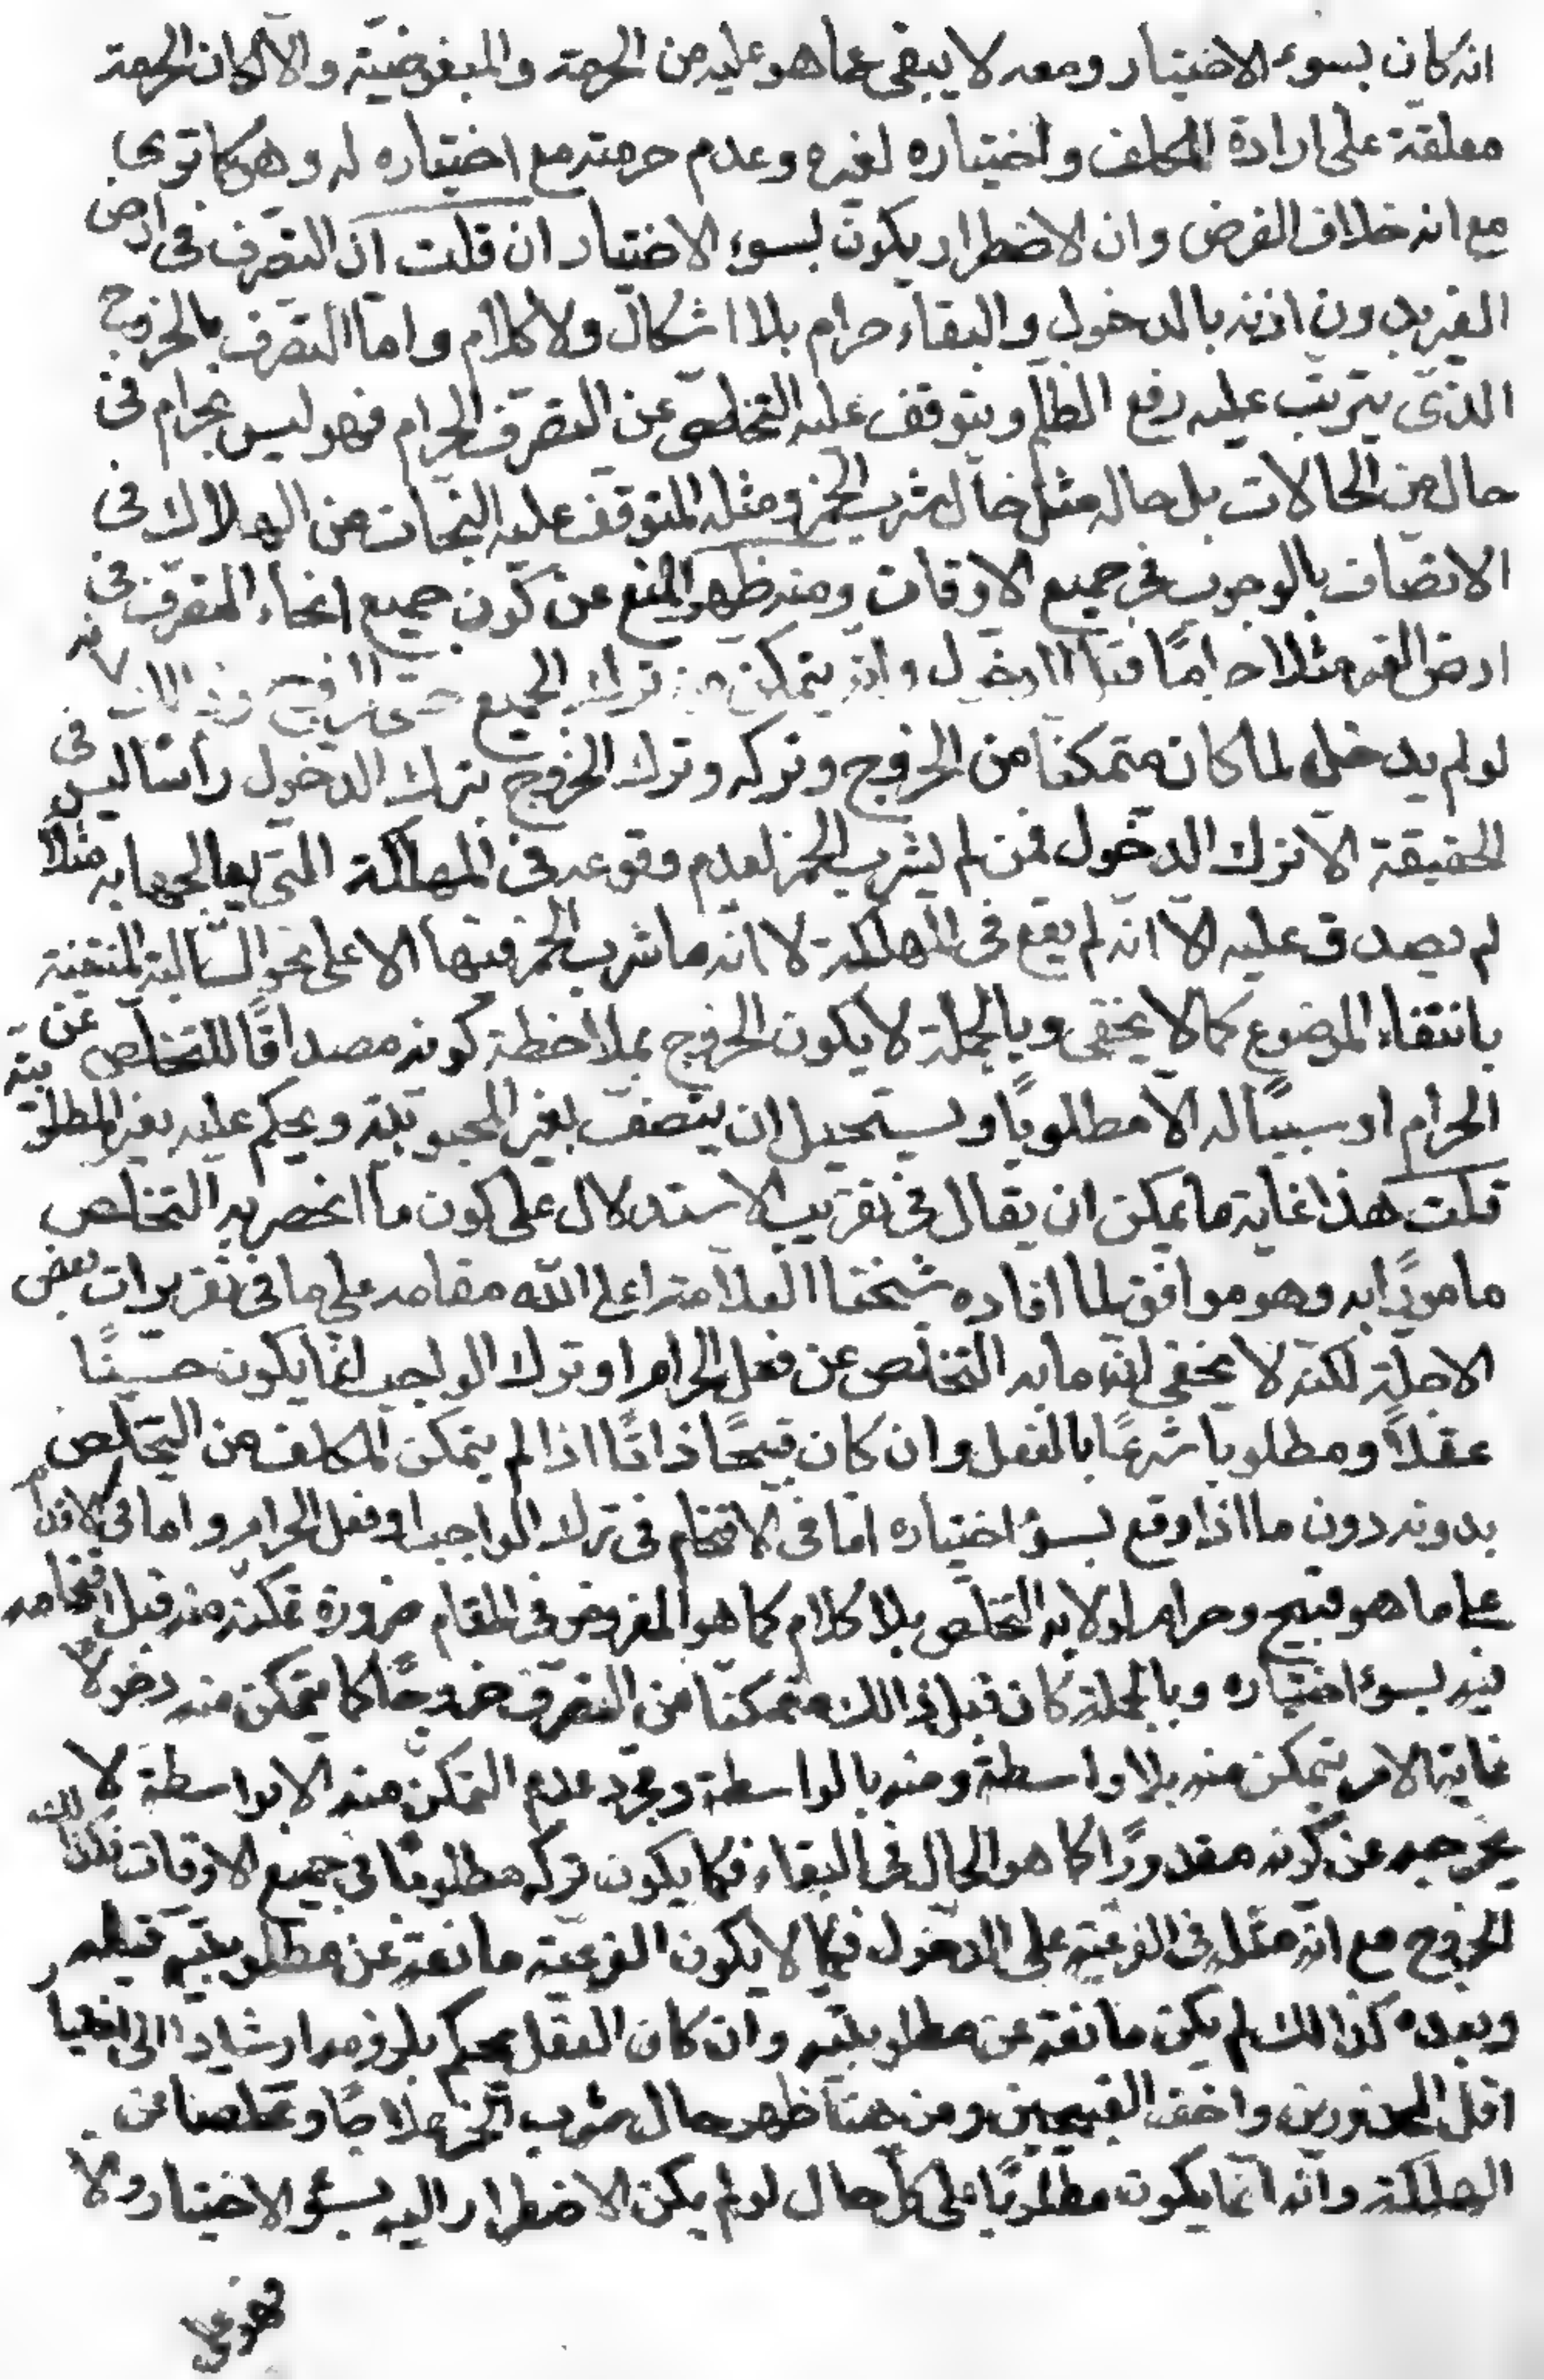 انه كان بسوء الاختيار ومعه لا يبقى عما هو عليه من الحرمة والمبغوضيّة والاّ لكان الحرمة
معلقة على ارادة المكلف واختياره لغيره وعدم حرمته مع اختياره له وهو كما ترى
مع انه خلاف الفرض وان الاضطرار يكون بسوء الاختيار ان قلت ان التصرف فى ارض
الغير بدون اذنه بالدخول والبقاء حرام بلا اشكال ولا كلام واما التصرف بالخروج
الذى يترتب عليه رفع الظلم ويتوقف عليه التخلص عن التصرف الحرام فهو ليس بحرام فى
حال من الحالات بل حاله مثل حال شرب الخمر ومثله المتوقف عليه النجات من الهلاك فى
الاتصاف بالوجوب فى جميع الاوقات ومنه ظهر المنع عن كون جميع انحاء التصرف فى
ارض الغير مثلا حرامًا قبل الدخول وانه يتمكن من ترك الجميع حتى الخروج وذالك لانه
لو لم يدخل لما كان متمكنا من الخروج وتركه وترك الخروج بترك الدخول رأسا ليس فى
الحقيقة الا ترك الدخول فمن لم يشرب الخمر لعدم وقوعه فى المهلكة التى يعالجها به مثلا
لم يصدق عليه الاّ انّه لم يقع فى المهلكة لا انه ما شرب الخمر فيها الا على نحو السّالبة المنتفية
بانتفاء الموضوع كما لا يخفى وبالجملة لا يكون الخروج بملاحظة كونه مصداقًا للتخلص عن
الحرام او سببًا له الاّ مطلوبًا ويستحيل ان يتصف بغير المحبوبيّة ويحكم عليه بغير المطلوبيّة
قلت هذا غاية ما يمكن ان يقال فى تقريب الاستدلال على كون ما انحصر به التخلص
مامورًا به وهو موافق لما افاده شيخنا العلامة اعلى الله مقامه على ما فى تقريرات بعض
الاجلة لكنه لا يخفى انّه ما به التخلص عن فعل الحرام او ترك الواجب انما يكون حسنًا
عقلاً ومطلوبا شرعًا بالفعل وان كان قبيحًا ذاتًا اذا لم يتمكن المكلف من التخلص
بدونه دون ما اذا وقع بسؤ اختياره امّا فى الاقتحام فى ترك الواجب او فعل الحرام واما فى الاقدام
على ما هو قبيح وحرام لولا به التخلص بلا كلام كما هو المفروض فى المقام ضرورة تمكنه منه قبل اقتحامه
فيه بسوء اختياره وبالجملة كان قبل ذالك متمكنا من التصرف خروجًا كما يتمكن منه دخولاً
غاية الامر يتمكن منه بلا واسطة ومنه بالواسطة ومجرد عدم التمكن منه الا بواسطة لا
يخرجه عن كونه مقدورًا كما هو الحال فى البقاء فكما يكون تركه مطلوبًا فى جميع الاوقات فكذالك
الخروج مع انّه مثله فى الفرعيّة على الدخول فكما لا يكون الفرعيّة مانعة عن مطلوبيّته قبله
وبعده كذالك لم يكن مانعة عن مطلوبيّته وان كان العقل يحكم بلزومه ارشادا الى اختيار
اقل المحذورين واخف القبيحين ومن هنا ظهر حال شرب الخمر علاجًا وتخلصا عن
الهلكة وانه انّما يكون مطلوبًا على كلّ حال لو لم يكن الاضطرار اليه بسؤ الاختيار والاّ
فهو على